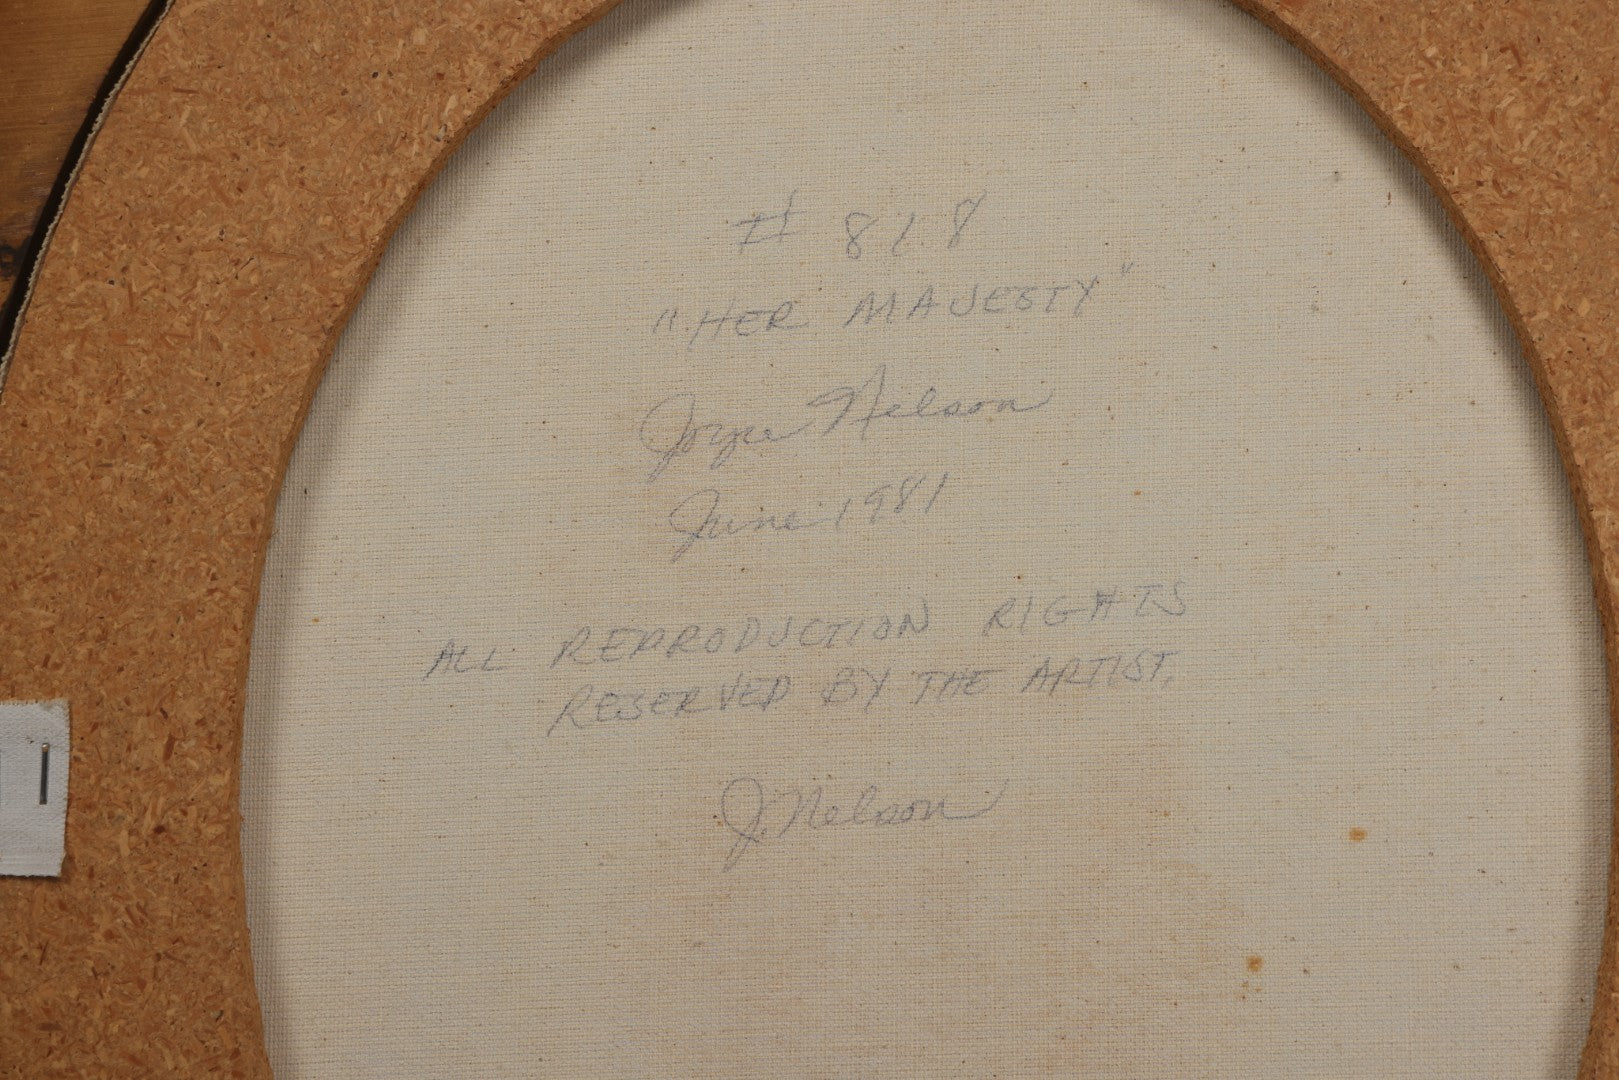 # 818
"HER MAJESTY"
Joyce Nelson
June 1981
ALL REPRODUCTION RIGHTS
RESERVED BY THE ARTIST.
J. Nelson